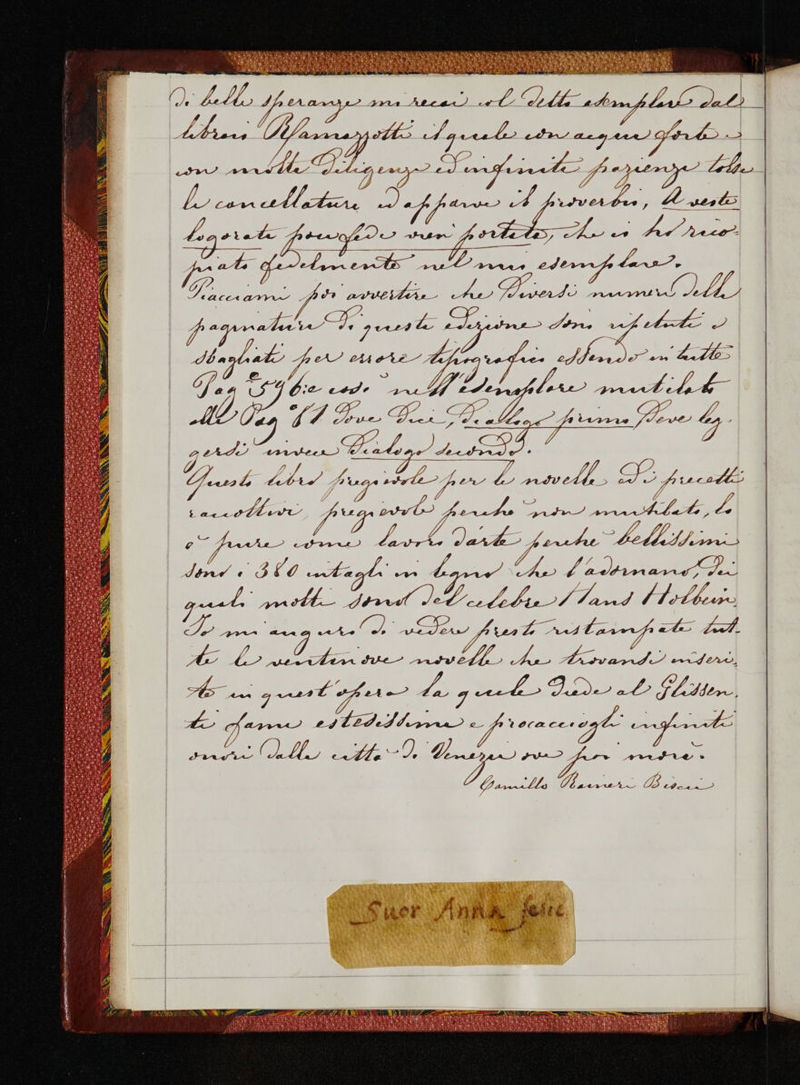 di belle speranze mi recai col detto esemplare dal
libraio Ramazzotti il quale con acqua forte e
con molta diligenza ed infinita pazienza tolse
le cancellature ed apparve il proverbio, A veste
logorata poca fede vien portata, che io ho rico-
piato fedelmente nel mio esemplare.
Piacciami poi avvertire che diversi numeri della
paginatura di questa edizione sono ripetuti e
sbagliati per errore tipografico essendo in tutto
Pag 59 bis nell'esemplare mutilato
alla Pag 61 dove dice Dialogo primo deve leg-
gersi invece Dialogo secondo.
Questo libro pregievole per le novelle e di precetti
raccoltivi, pregievole perchè non mutilato, lo
è pure come lavoro d'arte perchè bellissimi
sono i 380 intagli in legno che l'adornano, dei
quali molti sono del celebre Hans Holbein,
Io mi auguro di vedere presto ristampate tut-
te le ventinove novelle che trovansi inseri-
te in quest'opera la quale diede al Glissen-
ti fama estesissima e procacciogli infiniti
onori dalla città di Venezia ove poi morì.
Camillo Raineri Biscia
Suor Anna felic